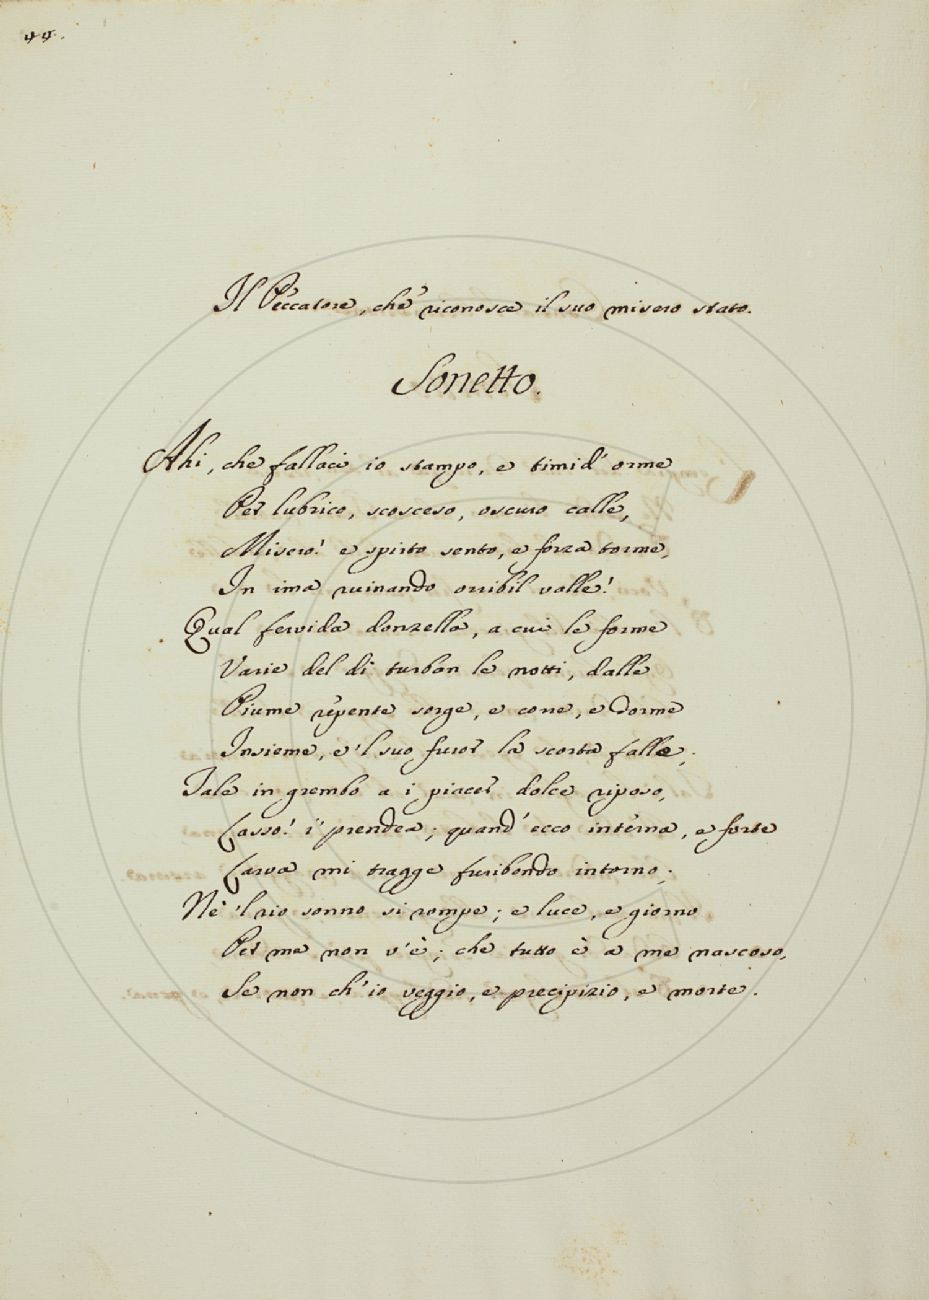 44.
Il Peccatore, che riconosce il suo misero stato.
Sonetto.
Ahi, che fallaci io stampo, e timid' orme
Per lubrico, scosceso, oscuro calle,
Misero! e spirto sento, e forza torme,
In ima ruinando orribil valle!
Qual fervida donzella, a cui le forme
Varie del dì turban le notti, dalle
Piume repente sorge, e corre, e dorme
Insieme, e 'l suo furor la scorta falle;
Tale in grembo a i piacer dolce riposo,
Lasso! i' prendea; quand' ecco interna, e forte
Larva mi tragge furibondo intorno;
Nè 'l rio sonno si rompe; e luce, e giorno
Per me non v'è; che tutto è a me nascoso,
Se non ch' io veggio, e precipizio, e morte.